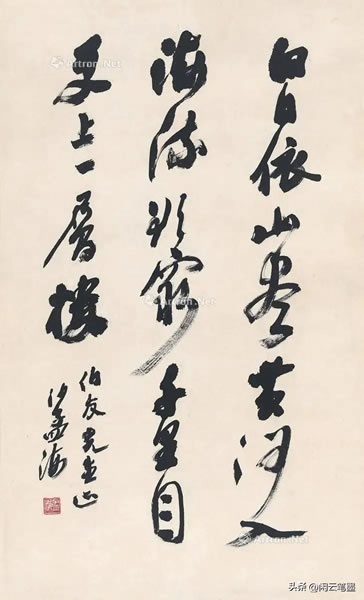 白日依山盡黄河入
海流欲窮千里目
更上一層樓
伯友先生正
沙孟海
Artron.Net
Artron.Net
头条 @闲云笔墨